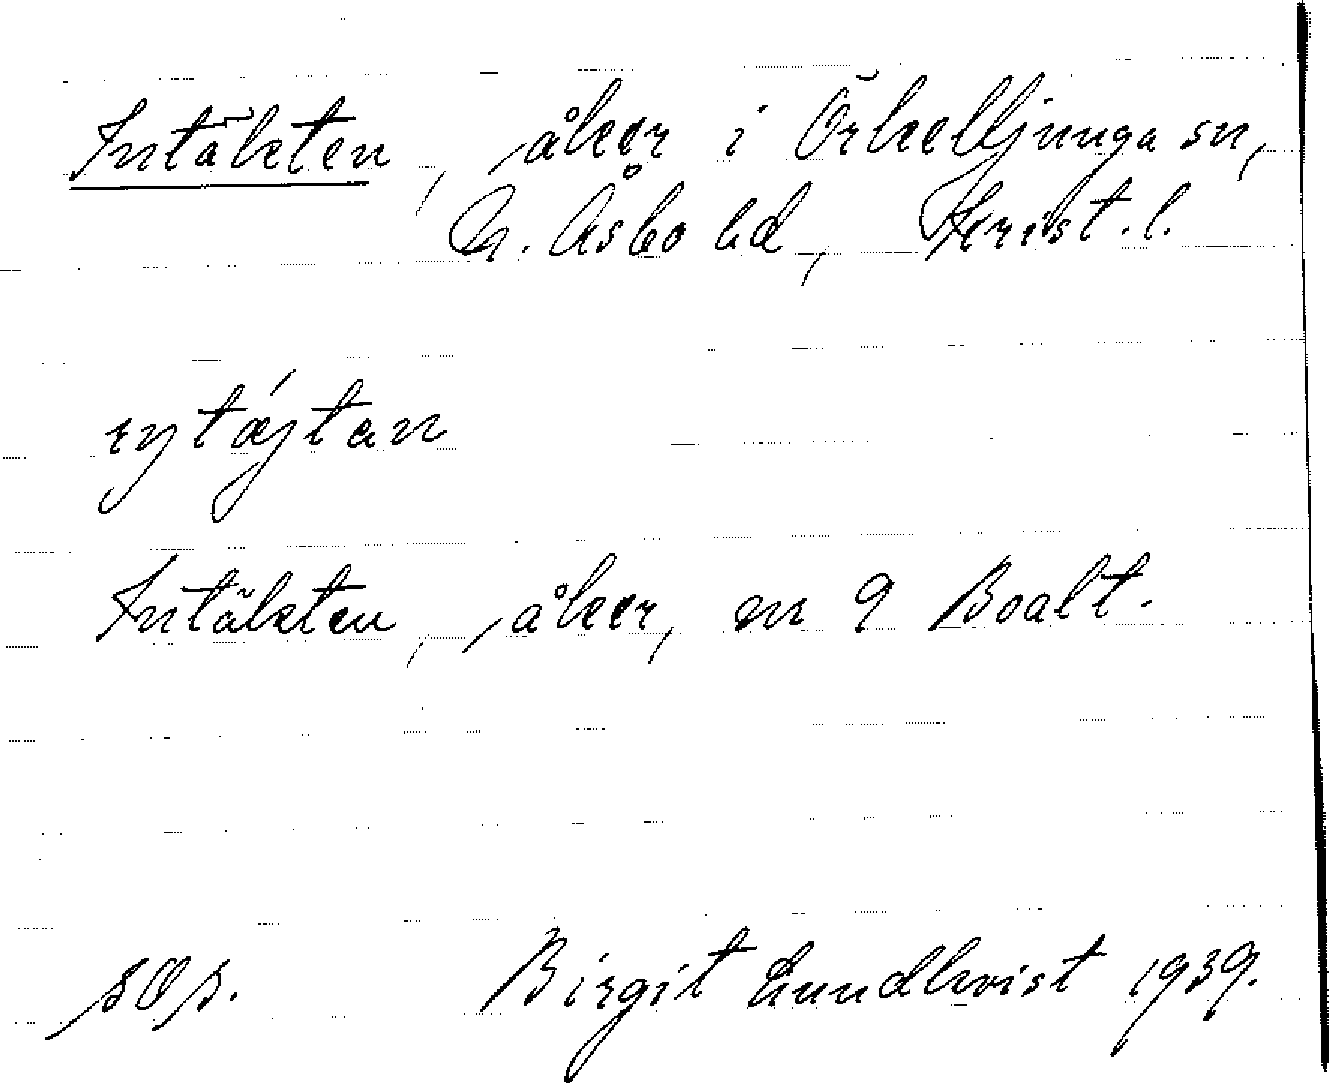 Intäkten, åker i Örkelljunga sn,
N. Åsbo hd, Krist. l.
Intäkten, åker, en 9 Boalt.
Birgit Lundkvist 1939.